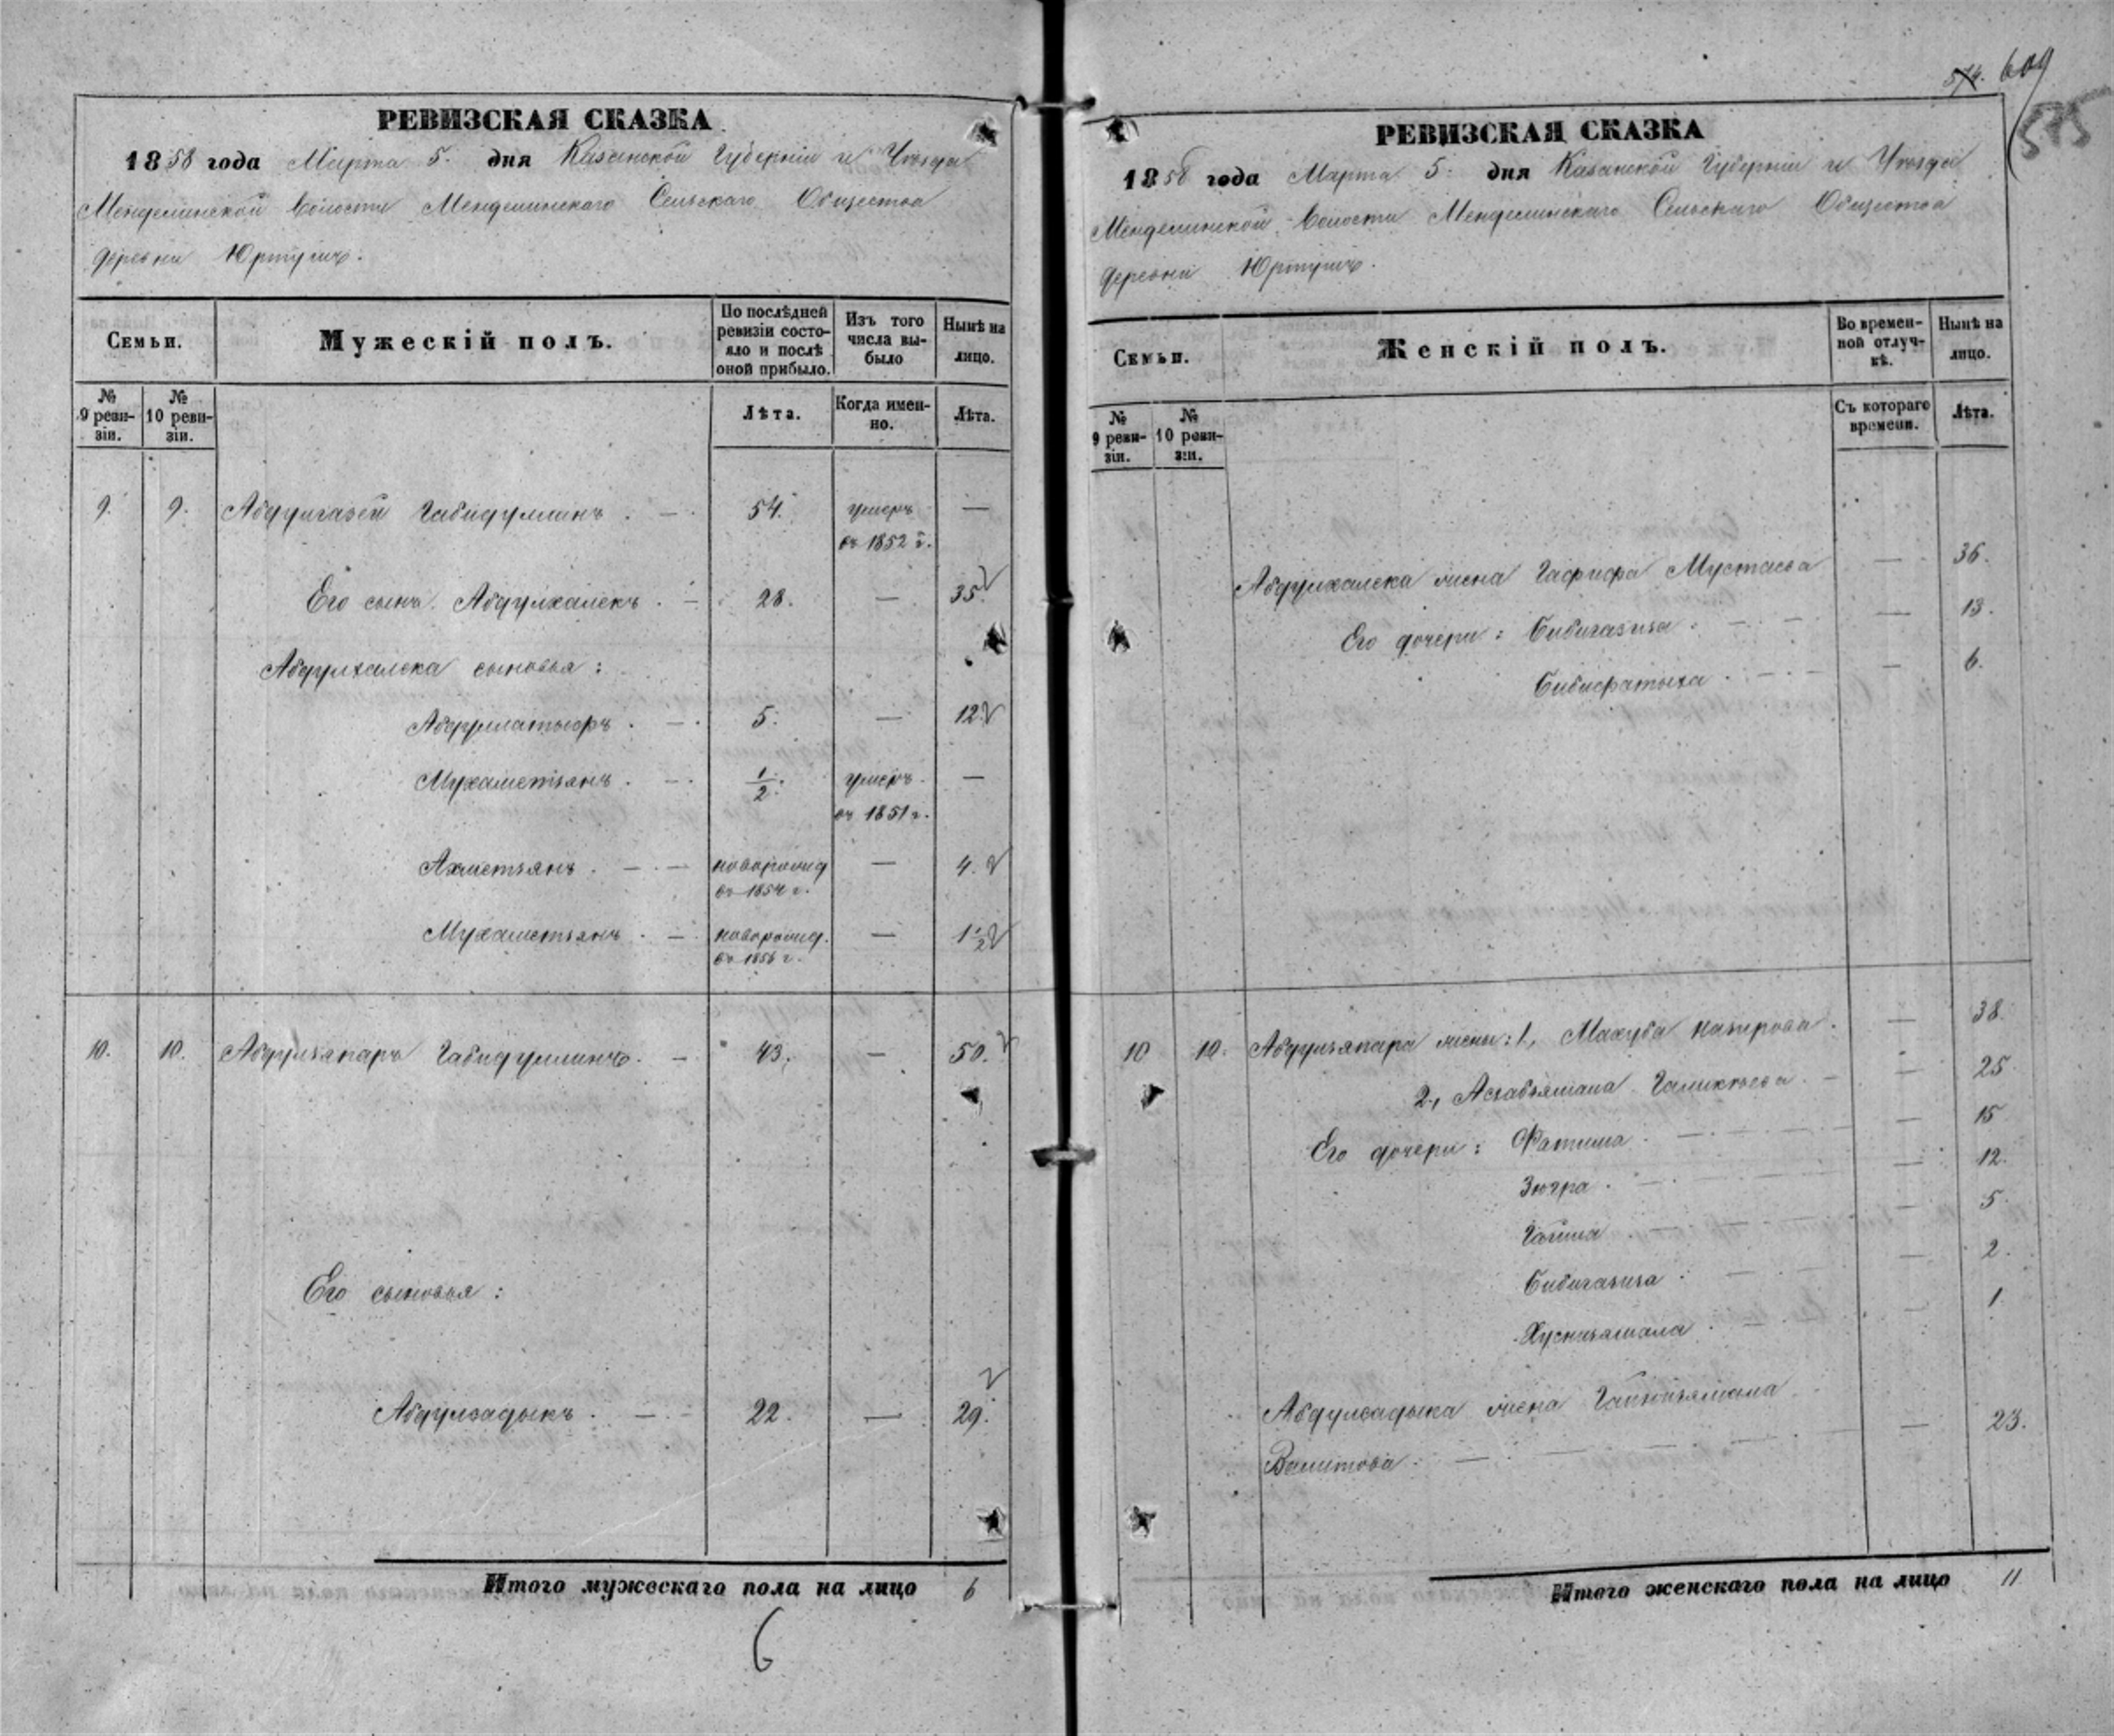 РЕВИЗСКАЯ СКАЗКА
1858 года Марта 5. дня Казанской Губерніи и Уѣзда
Менделинской Волости Менделинскаго Сельскаго Общества
деревни Юртушъ.
Семьи.
Мужескій полъ.
По послѣдней ревизіи состояло и послѣ оной прибыло.
Изъ того числа выбыло
Нынѣ на лицо.
№ 9 ревизіи.
№ 10 ревизіи.
Лѣта.
Когда именно.
Лѣта.
9. 9. Абдулгазей Габидуллинъ . — 54. умеръ —
въ 1852 г.
Его сынъ Абдулхалекъ . — 28. — 35.
Абдулхалека сыновья:
Абдуллатыфъ . — 5. — 12.
Мухаметзянъ . — 1/2. умеръ —
въ 1851 г.
Ахметзянъ . — новорожд — 4.
въ 1854 г.
Мухаметзянъ . — новорожд. — 1 1/2
въ 1856 г.
10. 10. Абдулзяпаръ Габидуллинъ. — 43. — 50.
Его сыновья:
Абдулсадыкъ . — 22. — 29.
Итого мужескаго пола на лицо 6
6
574. 609
575
РЕВИЗСКАЯ СКАЗКА
1858 года Марта 5. дня Казанской Губерніи и Уѣзда
Менделинской Волости Менделинскаго Сельскаго Общества
деревни Юртушъ.
Семьи.
Женскій полъ.
Во временной отлучкѣ.
Нынѣ на лицо.
№ 9 ревизіи.
№ 10 ревизіи.
Съ котораго времени.
Лѣта.
Абдулхалека жена Гафифа Мустаева — 36.
Его дочери: Бибигазиза . — 13.
Бибифатыха . — 6.
10 10. Абдулзяпара жены: 1, Махуба Назирова . — 38.
2, Асхабзямала Галикѣева . — 25.
Его дочери: Фатима . — 15
Зюгра . — 12.
Гайша — 5
Бибигазиза . — 2.
Хуснизямала . — 1.
Абдулсадыка жена Гайнизямала
Валитова . — 23.
Итого женскаго пола на лицо 11